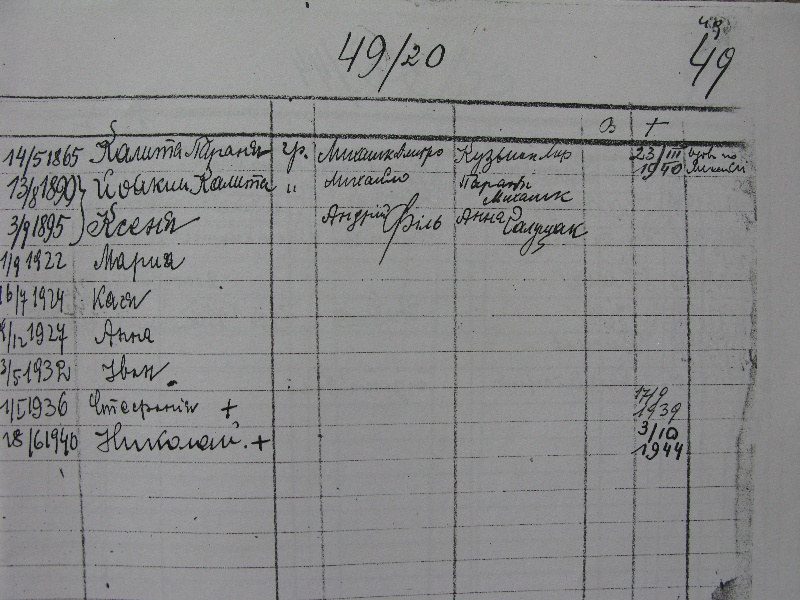 49
49/20
49
В †
14/5 1865 Калита Параня гр. Михашко Дмитро Кузьмак Мар 23/III
1940
13/8 1890 Йоаким Калита " Михайло Параня
Михашк
3/9 1895 Ксеня Андрій Філь Анна
Галущак
1/9 1922 Мария
16/7 1924 Кася
/12 1927 Анна
3/5 1932 Іван
1/I 1936 Стефанія + 17/9
1939
18/6 1940 Николай + 3/10
1944